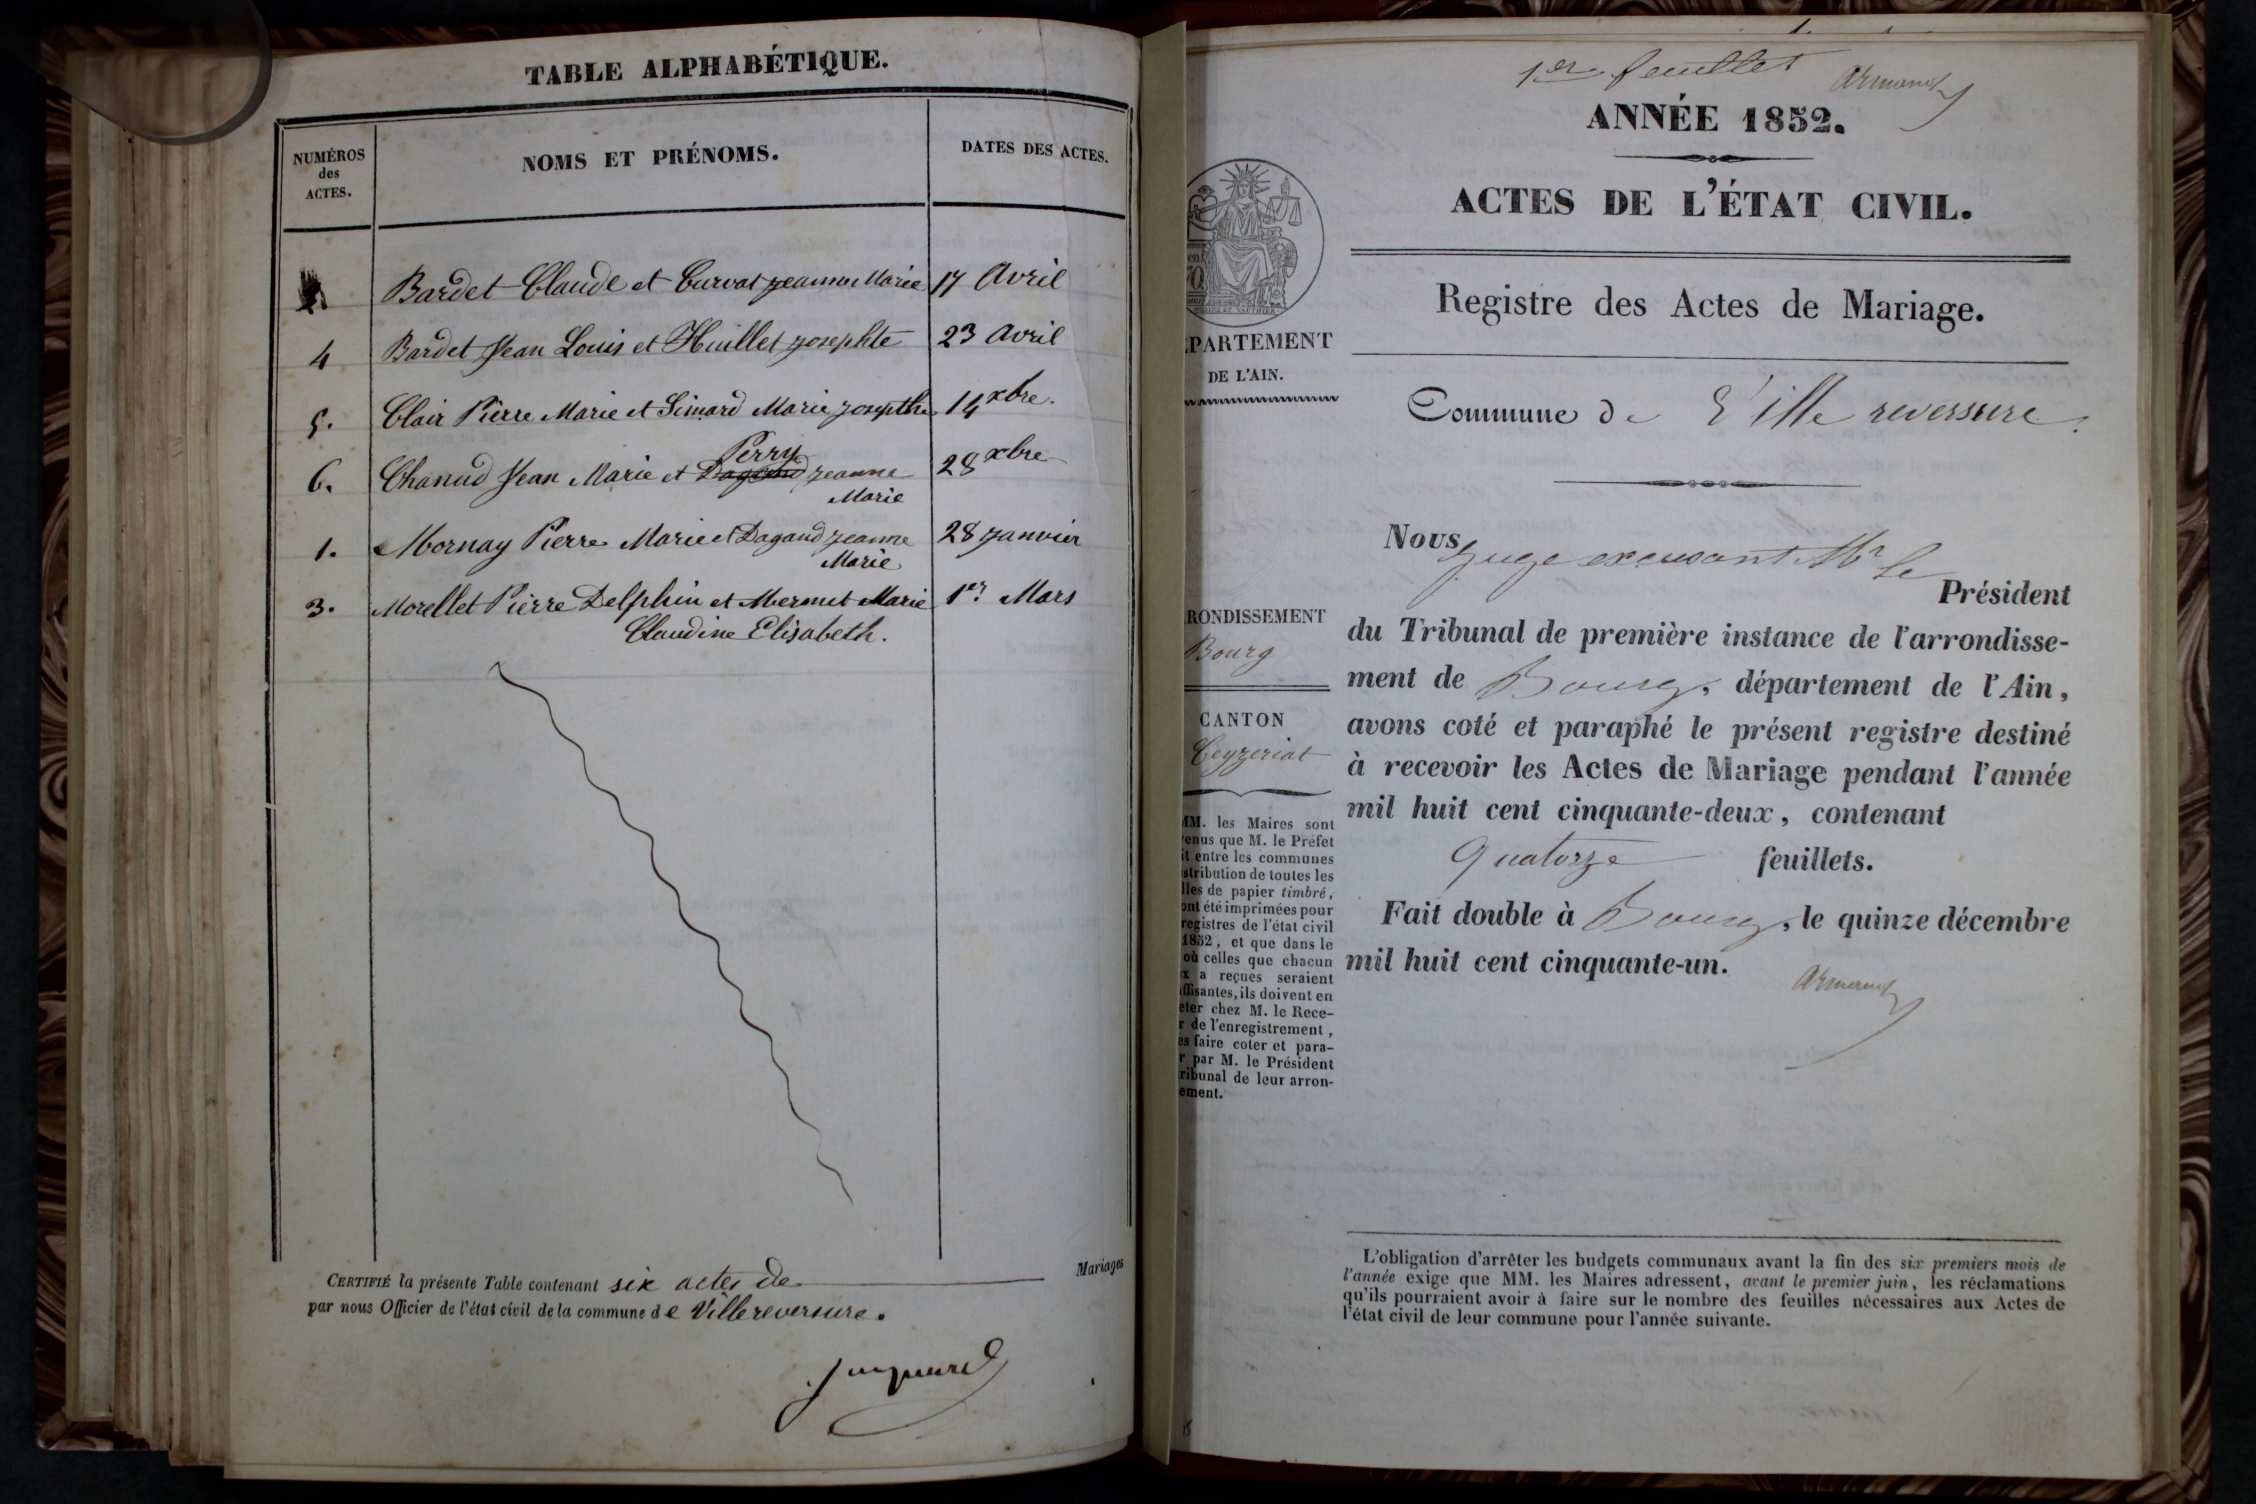 TABLE ALPHABÉTIQUE.
NUMÉROS
des
ACTES.
NOMS ET PRÉNOMS.
DATES DES ACTES.
Bardet Claude et Curvat jeanne Marie 17 Avril
4 Bardet Jean Louis et Huillet josephte 23 avril
5. Clair Pierre Marie et Simard Marie josephthe 14 xbre.
Perry
6. Chanud Jean Marie et Dagand jeanne 28 xbre
Marie
1. Mornay Pierre Marie et Dagand jeanne 28 janvier
Marie
3. Morellet Pièrre Delphin et Mermet Marie 1er Mars
Claudine Elisabeth.
Mariages
CERTIFIÉ la présente Table contenant six actes de
par nous Officier de l'état civil de la commune de Villereversure.
1er feuillet
Armand
ANNÉE 1852.
ACTES DE L'ÉTAT CIVIL.
Registre des Actes de Mariage.
PARTEMENT
DE L'AIN.
Commune de Villereversure.
Nous juge excusant Mr le
Président
du Tribunal de première instance de l'arrondisse-
ment de Bourg, département de l'Ain,
avons coté et paraphé le présent registre destiné
à recevoir les Actes de Mariage pendant l'année
mil huit cent cinquante-deux, contenant
Quatorze feuillets.
Fait double à Bourg, le quinze décembre
mil huit cent cinquante-un.
Armand
RONDISSEMENT
Bourg
CANTON
Ceyzeriat
MM. les Maires sont
enus que M. le Préfet
it entre les communes
stribution de toutes les
lles de papier timbré,
ont été imprimées pour
registres de l'état civil
1852, et que dans le
où celles que chacun
x a reçues seraient
ffisantes, ils doivent en
eter chez M. le Rece-
r de l'enregistrement,
es faire coter et para-
r par M. le Président
ribunal de leur arron-
ement.
L'obligation d'arrêter les budgets communaux avant la fin des six premiers mois de
l'année exige que MM. les Maires adressent, avant le premier juin, les réclamations
qu'ils pourraient avoir à faire sur le nombre des feuilles nécessaires aux Actes de
l'état civil de leur commune pour l'année suivante.